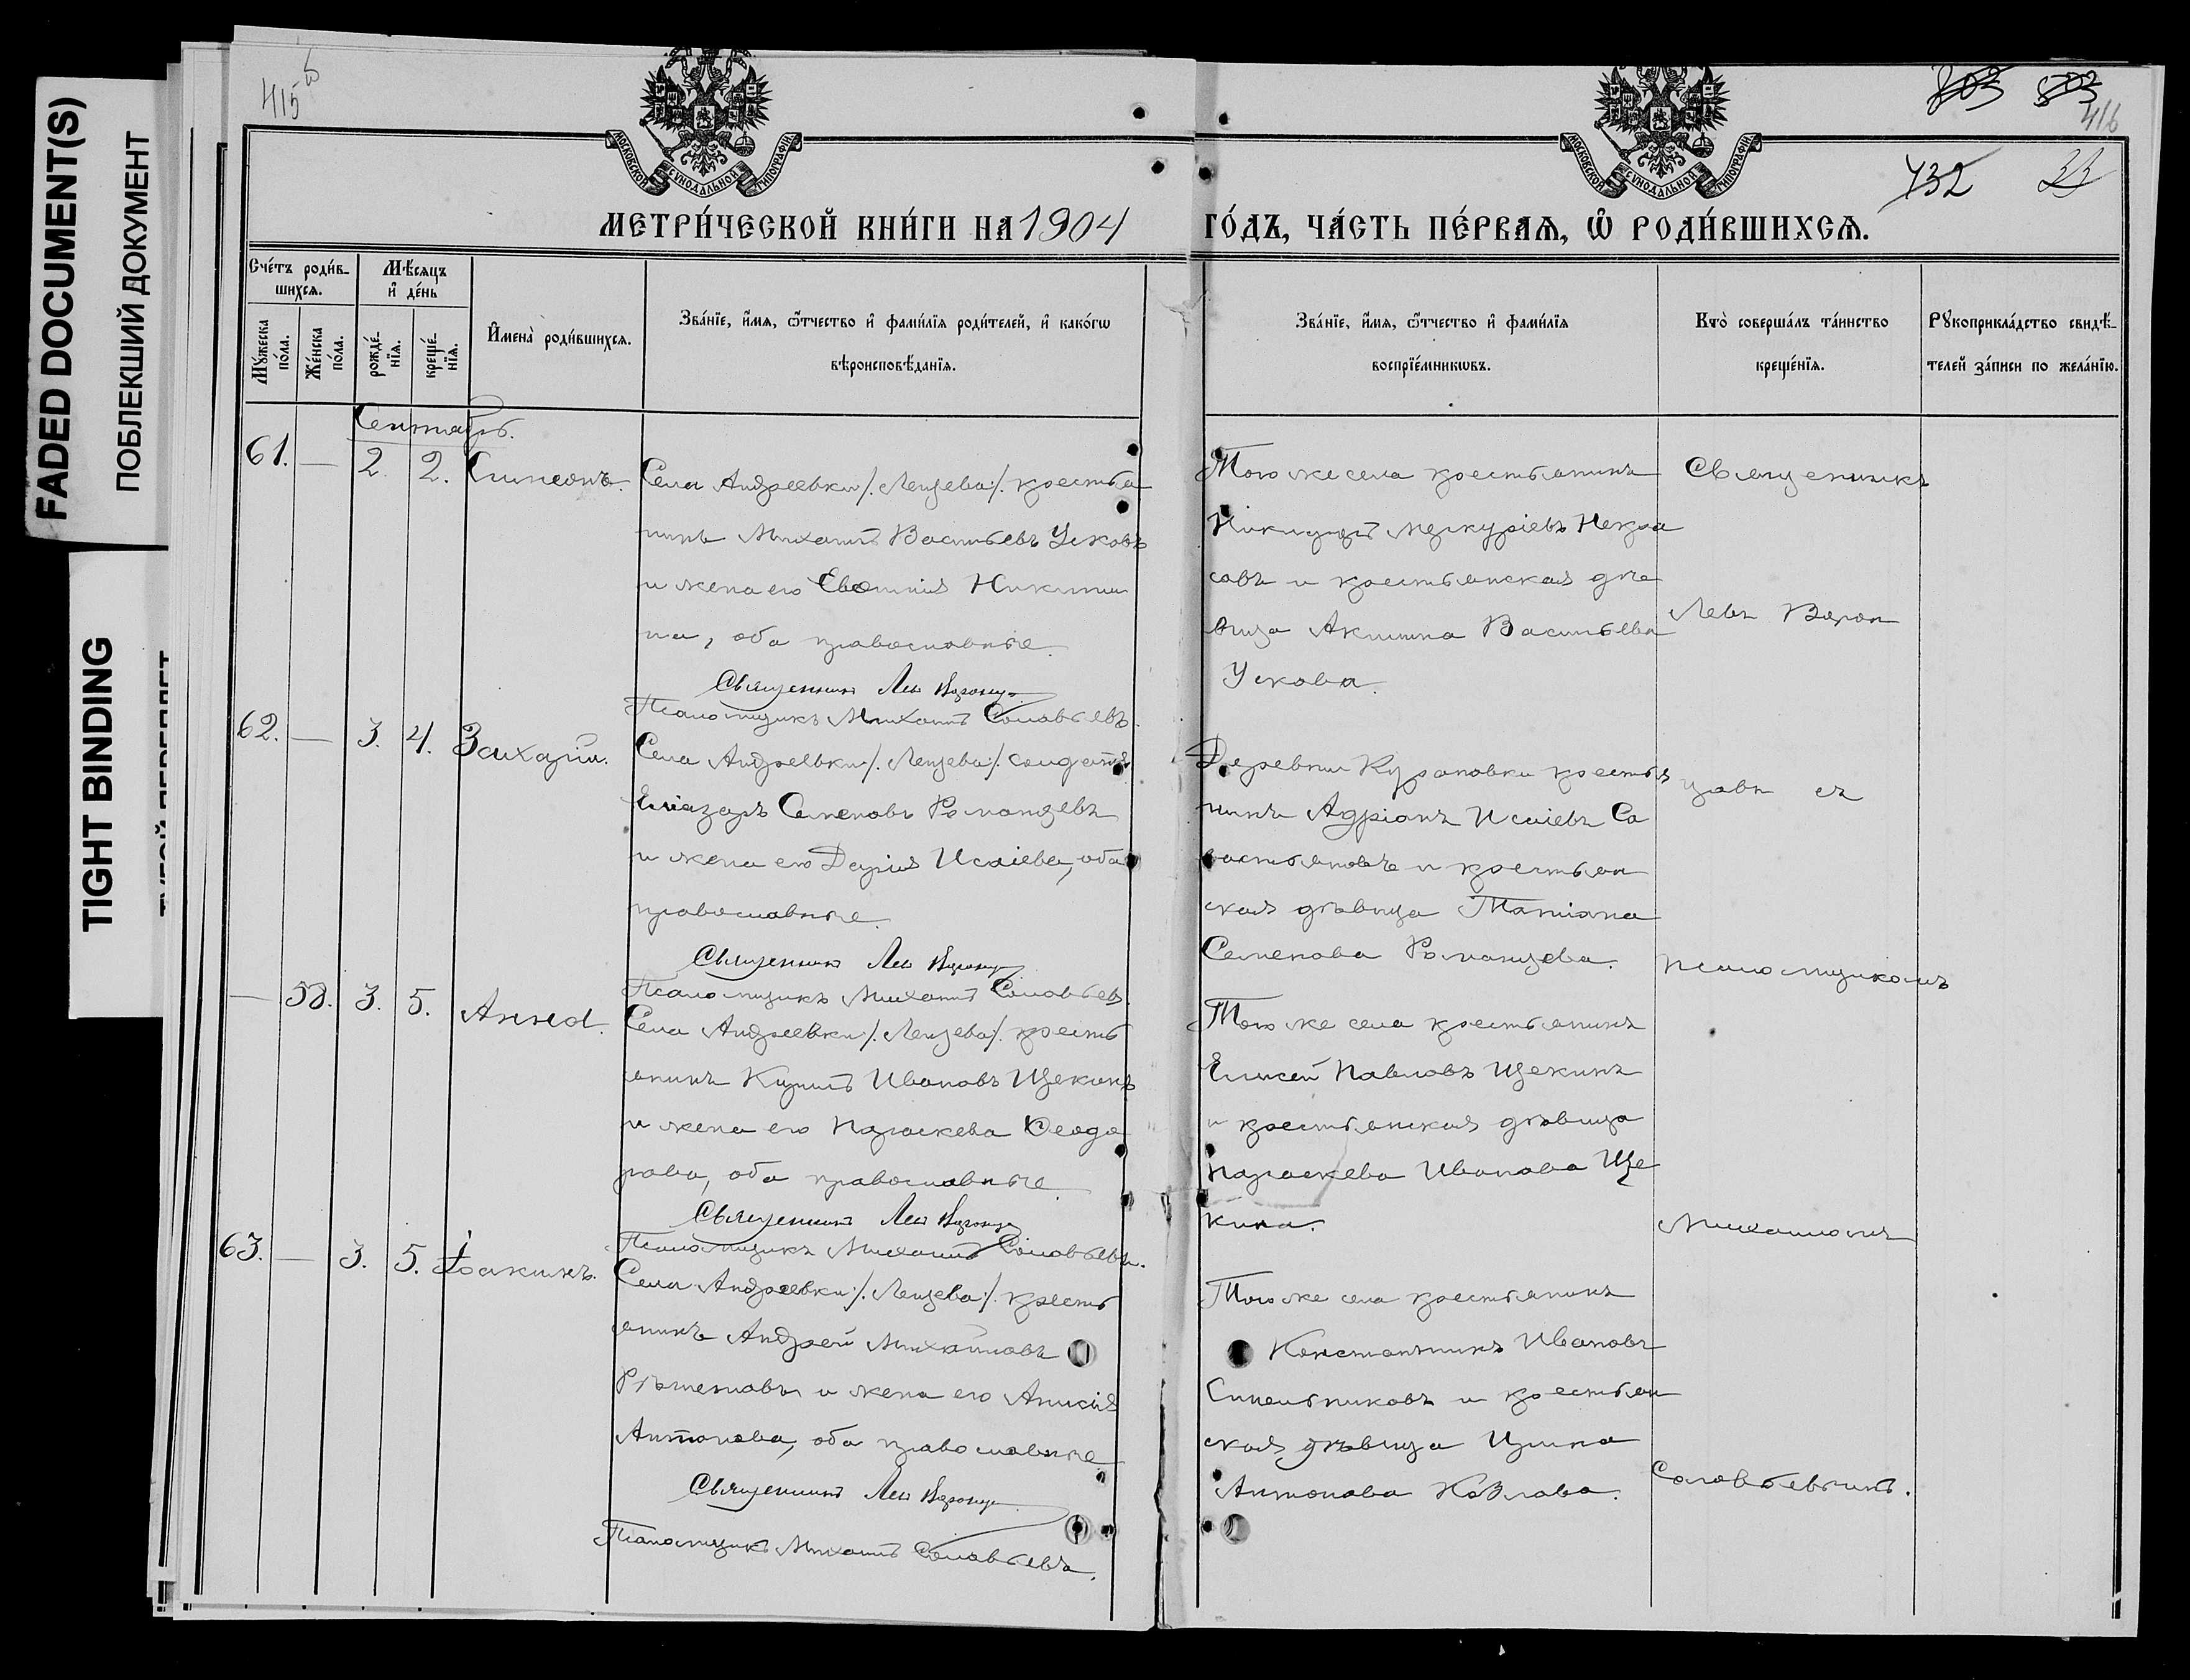 FADED DOCUMENT(S)
ПОБЛЕКШИЙ ДОКУМЕНТ
TIGHT BINDING
415
803 803
416
732 33
МОСКОВСКОЙ СУНОДАЛЬНОЙ ТИПОГРАФІИ.
МОСКОВСКОЙ СУНОДАЛЬНОЙ ТИПОГРАФІИ.
МЕТРИ́ЧЕСКОЙ КНИ́ГИ НА 1904 ГО́ДЪ, ЧА́СТЬ ПЕ́РВАЯ, Ѡ҆ РОДИ́ВШИХСЯ.
Сче́тъ роди́в-
шихся.
Му́жеска по́ла.
Же́нска по́ла.
Мѣ́сяцъ
и҆ де́нь
рожде́-
нїя.
креще́-
нїя.
И҆мена̀ роди́вшихся.
Зва́нїе, и҆́мя, ѻ҆́тчество и҆ фами́лїя роди́телей, и҆ како́гѡ
вѣроисповѣ́данїя.
Зва́нїе, и҆́мя, ѻ҆́тчество и҆ фами́лїя
воспрїе́мникѡвъ.
Кто̀ соверша́лъ та́инство
креще́нїя.
Рꙋкоприкла́дство свидѣ́-
телей за́писи по жела́нїю.
Сентябрь.
61. — 2. 2. Симеонъ.
Села Андреевки /. Ленцева /. крестья
нинъ Михаилъ Васильевъ Усковъ
и жена его Евѳимія Никити
на, оба православные.
Священникъ Левъ Воронц
Псаломщикъ Михаилъ Соловьевъ.
Того же села крестьянинъ
Никифоръ Меркуріевъ Некра
совъ и крестьянская дѣ
вица Акилина Васильева
Ускова.
62. — 3. 4. Захарія.
Села Андреевки /. Ленцева /. солдатъ
Еліазаръ Семеновъ Романцевъ
и жена его Дарія Исаіева, оба
православные.
Священникъ Левъ Воронц
Псаломщикъ Михаилъ Соловьевъ.
Деревни Курановки крестья
нинъ Адріанъ Исаіевъ Са
вастьяновъ и крестьян
ская дѣвица Татіана
Семенова Романцева.
— 58. 3. 5. Анна.
Села Андреевки /. Ленцева /. кресть
янинъ Кириллъ Ивановъ Щекинъ
и жена его Параскева Ѳеодо
рова, оба православные.
Священникъ Левъ Воронц
Псаломщикъ Михаилъ Соловьевъ.
Того же села крестьянинъ
Елисей Павловъ Щекинъ
и крестьянская дѣвица
Параскева Иванова Ще
кина.
63. — 3. 5. Іоакимъ.
Села Андреевки /. Ленцева /. кресть
янинъ Андрей Михайловъ
Рѣшетовъ и жена его Анисія
Антонова, оба православные
Священникъ Левъ Воронц
Псаломщикъ Михаилъ Соловьевъ.
Того же села крестьянинъ
Константинъ Ивановъ
Синельниковъ и крестьян
ская дѣвица Ирина
Антонова Козлова.
Священникъ
Левъ Ворон
цовъ съ
псаломщикомъ
Михаиломъ
Соловьевымъ.